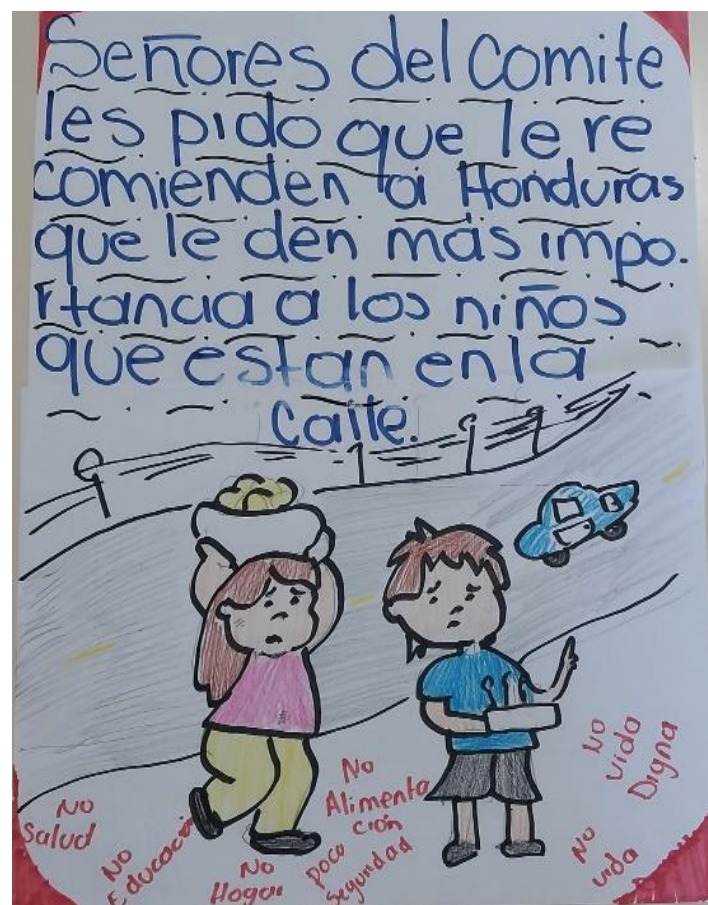 Señores del comite
les pido que le re
comienden a Honduras
que le den más impo.
rtancia a los niños
que estan en la
calle.
No
Salud
No
Educación
No
Hogar
No
Alimenta
ción
poca
Seguridad
No
vida
Digna
No
vida